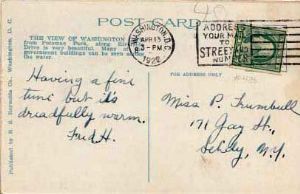 POST CARD
THE VIEW OF WASHINGTON
from Potomac Park, along
Drive is very beautiful. Many of
government buildings can be seen
the water.
WASHINGTON, D.C.
APR 13
3-PM
1922
ADDRESS
YOUR MAIL
TO
STREET AND
NUMBER
Having a fine
time but it's
dreadfully warm.
Fred H.
Miss P. Trumbull
171 Jay St.,
N.Y.
Published by B. S. Reynolds Co., Washington, D. C.